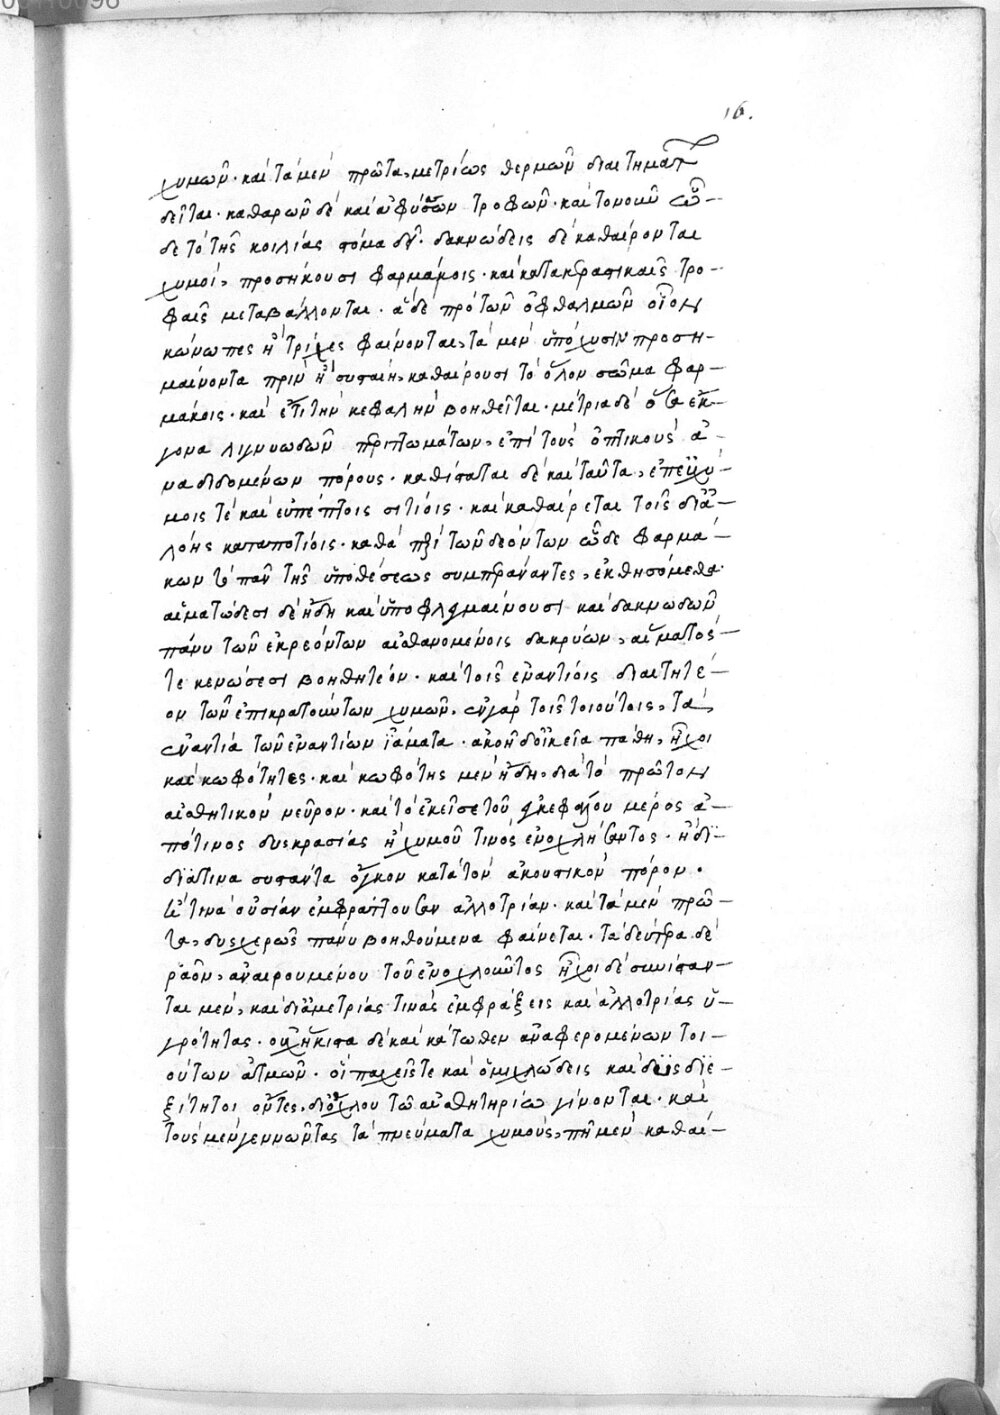 16.
χυμῶν· καὶ τὰ μὲν πρῶτα, μετρίως θερμῶν διαιτημάτων
δεῖται· καθαρῶν δὲ καὶ ἀφύσων τροφῶν· καὶ τονούντων ὧ-
δε τὸ τῆς κοιλίας στόμα δεῖ· δακνώδεις δὲ καθαίρονται
χυμοί, προσήκουσι φαρμάκοις· καὶ κατακεραστικαῖς τρο-
φαῖς μεταβάλλονται· ἃ δὲ πρὸ τῶν ὀφθαλμῶν οἷον
κώνωπες ἢ τρίχες φαίνονται, τὰ μὲν ὑπόχυσιν προση-
μαίνοντα πρὶν ἢ συσταίη, καθαίρουσι τὸ ὅλον σῶμα φαρ-
μάκοις· καὶ ἔτι τὴν κεφαλὴν βοηθεῖται· μέτρια δὲ ὅσα ἔκ-
γονα λιγνυωδῶν περιττωμάτων, ἐπὶ τοὺς ὀπτικοὺς ἀ-
ναδιδομένων πόρους· καθίσταται δὲ καὶ ταῦτα, ἐπ' εὐχύ-
μοις τὲ καὶ εὐπέπτοις σιτίοις· καὶ καθαίρεται τοῖς διὰ ἀ-
λόης καταποτίοις· καθὰ περὶ τῶν δεόντων ὧδε φαρμά-
κων τὸ πᾶν τῆς ὑποθέσεως συμπεράναντες, ἐκθησόμεθα·
αἱματώδεσι δὲ ἤδη καὶ ὑποφλεγμαίνουσι καὶ δακνωδῶν
πάνυ τῶν ἐκρεόντων αἰσθανομένοις δακρύων, αἵματός
τε κενώσεσι βοηθητέον· καὶ τοῖς ἐναντίοις διαιτητέ-
ον τῶν ἐπικρατούντων χυμῶν. ἐν γὰρ τοῖς τοιούτοις, τὰ
ἐναντία τῶν ἐναντίων ἰάματα· ἀκοῆ δοἰκεῖα πάθη, ἦχοι
καὶ κωφότητες· καὶ κωφότης μὲν ἤδη, διὰ τὸ πρῶτον
αἰσθητικὸν νεῦρον· καὶ τὸ ἐκεῖσε τοῦ ἐγκεφάλου μέρος ἀ-
πό τινος δυσκρασίας ἢ χυμοῦ τινὸς ἐνοχλήσαντος· ἢ δι-
διά τινα συστάντα ὄγκον κατὰ τὸν ἀκουστικὸν πόρον·
ἤ τινα οὐσίαν ἐμφράττουσαν ἀλλοτρίαν· καὶ τὰ μὲν πρῶ-
τα, δυσχερῶς πάνυ βοηθούμενα φαίνεται· τὰ δεύτερα δὲ
ῥᾷον, ἀναιρουμένου τοῦ ἐνοχλοῦντος ἦχοι δὲ συνίσταν-
ται μὲν, καὶ διὰ μετρίας τινὰς ἐμφράξεις καὶ ἀλλοτρίας ὑ-
γρότητας· οὐχ ἥκιστα δὲ καὶ κάτωθεν ἀναφερομένων τοι-
ούτων ἀτμῶν· οἳ παχεῖς τε καὶ ὁμιχλώδεις καὶ δυσδιε-
ξίτητοι ὄντες, δι' ὄχλου τῶ αἰσθητηρίω γίνονται· καὶ
τοὺς μὲν γεννῶντας τὰ πνεύματα χυμοὺς, πῆ μὲν καθαί-